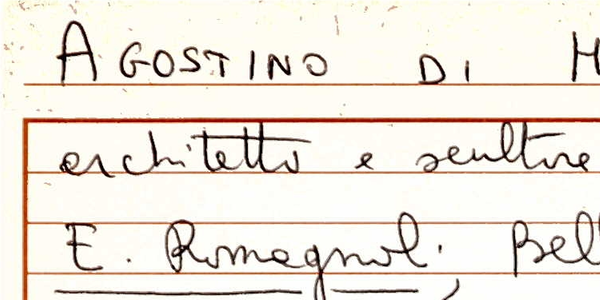 AGOSTINO DI
architetto e scultore
E. Romagnoli,